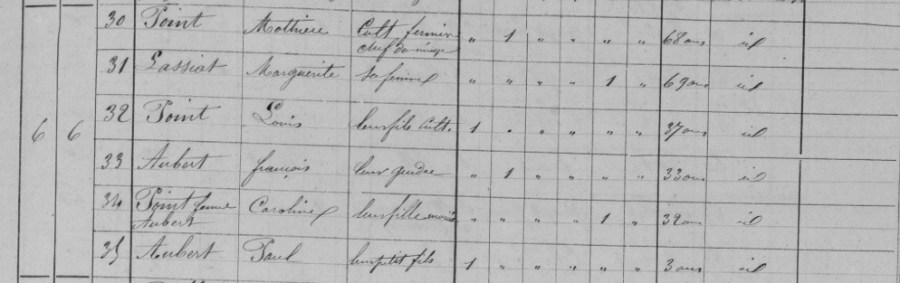 30 Point Mathieu Cult. fermier chef de ménage " 1 " " " " 68 ans id
31 Lassiat Marguerite sa femme " " " " 1 " 69 ans id
32 Point Louis leur fils Cult. 1 " " " " " 37 ans id
6 6
33 Aubert françois leur gendre " 1 " " " " 33 ans id
34 Point femme Aubert Caroline leur fille " " " " 1 " 32 ans id
35 Aubert Paul leur petit fils 1 " " " " " 3 ans id